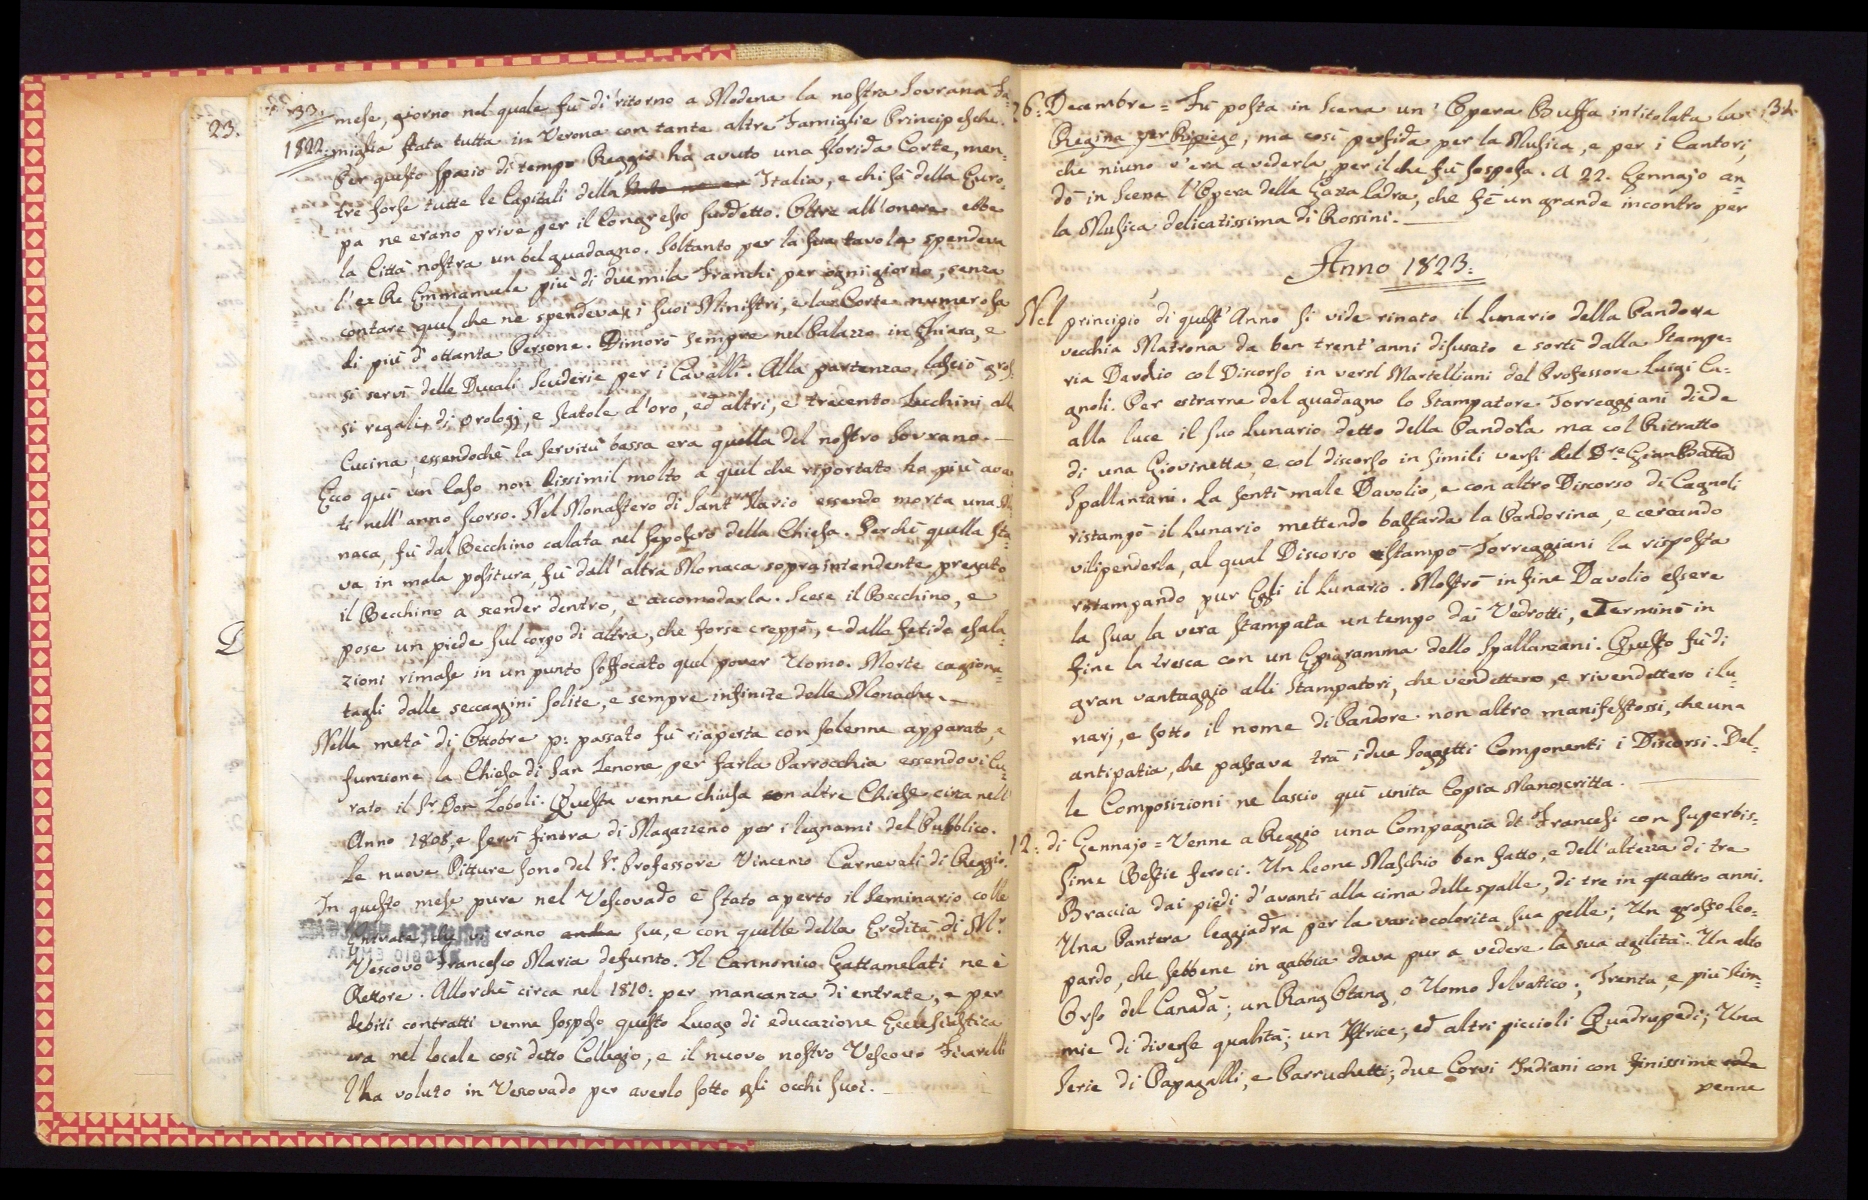 23.
33.
1822.
mese, giorno nel quale fù di ritorno a Modena la nostra Sovrana Fa-
miglia stata tutta in Verona con tante altre Famiglie Principesche.
Per questo spazio di tempo Reggio ha avuto una florida Corte, men-
tre forse tutte le Capitali della Italia, e chi sà della Euro-
pa ne erano prive per il Congresso suddetto. Oltre all'onore ebbe
la Città nostra un bel guadagno. Soltanto per la sua tavola spendeva
l'ex Re Emmanuele più di due mila Franchi per ogni giorno, senza
contare quel che ne spendeva i suoi Ministri, e la Corte numerosa
di più d'ottanta Persone. Dimorò sempre nel Palazzo in Ghiara, e
si servì delle Ducali Scuderie per i Cavalli. Alla partenza lasciò gros-
si regali di orologj, e scatole d'oro, ed altri, e trecento Zecchini alla
Cucina, essendochè la servitù bassa era quella del nostro Sovrano.
Ecco quì un Caso non dissimil molto a quel che riportato ha più avan-
ti nell'anno scorso. Nel Monastero di Sant'Ilario essendo morta una Mo-
naca, fù dal Becchino calata nel sepolcro della Chiesa. Perchè quella sta-
va in mala positura, fù dall'altra Monaca sopraintendente pregato
il Becchino a scender dentro, e accomodarla. Scese il Becchino, e
pose un piede sul corpo di altra, che forse creppò, e dalle fetide esala-
zioni rimase in un punto soffocato quel pover Uomo. Morte cagiona-
tagli dalle seccaggini solite, e sempre infinite delle Monache.
Nella metà di Ottobre p: passato fù riaperta con solenne apparato, e
funzione la Chiesa di San Zenone per farla Parrocchia essendovi Cu-
rato il Sr. Don Zoboli. Questa venne chiusa con altre Chiese circa nell'
Anno 1808, e servì finora di Magazzeno per i legnami del Pubblico.
Le nuove Pitture sono del Sr. Professore Vincenzo Carnevali di Reggio.
In questo mese pure nel Vescovado è stato aperto il Seminario colle
Entrate, che vi erano su, e con quelle della Eredità di Mr.
Vescovo Francesco Maria defunto. Il Cannonico Gattamelati ne è
Rettore. Allorchè circa nel 1810: per mancanza di entrate, e per
debiti contratti venne sospeso questo Luogo di educazione Ecclesiastica
era nel locale così detto Collegio, e il nuovo nostro Vescovo Ficarelli
l'ha voluto in Vescovado per averlo sotto gli occhi suoi.
34.
26: Decembre = Fù posta in Scena un'Opera Buffa intitolata la
Regina per Ripiego, ma così perfida per la Musica, e per i Cantori,
che niuno v'era a vederla, per il che fù sospesa. A 22. Gennajo an-
dò in Scena l'Opera della Gaza ladra, che fè un grande incontro per
la Musica delicatissima di Rossini.
Anno 1823.
Nel principio di quest'Anno si vide rinato il Lunario della Pandora
vecchia Matrona da ben trent'anni disusato e sortì dalla Stampe-
ria Davolio col Discorso in versi Martelliani del Professore Luigi Ca-
gnoli. Per estrarne del guadagno lo Stampatore Torreggiani diede
alla luce il suo Lunario detto della Pandora ma col Ritratto
di una Giovinetta, e col discorso in simili versi del Dre. GianBatta
Spallanzani. La sentì male Davolio, e con altro Discorso di Cagnoli
ristampò il Lunario mettendo bastarda la Pandorina, e cercando
vilipenderla, al qual Discorso stampò Torreggiani la risposta
ristampando pur Egli il Lunario. Mostrò in fine Davolio essere
la sua la vera stampata un tempo dai Vedrotti, e Terminò in
fine la tresca con un Epigramma dello Spallanzani. Questo fù di
gran vantaggio alli Stampatori, che vendettero, e rivendettero i Lu-
narj, e sotto il nome di Pandore non altro manifestossi, che una
antipatia, che passava trà i due Soggetti Componenti i Discorsi. Del-
le Composizioni ne lascio quì unita Copia Manoscritta.
12: di Gennajo = Venne a Reggio una Compagnia di Francesi con superbis-
sime Bestie feroci. Un Leone Maschio ben fatto, e dell'altezza di tre
Braccia dai piedi d'avanti alla cima delle spalle, di tre in quattro anni.
Una Pantera leggiadra per la variocolorita sua pelle; Un grosso Leo-
pardo, che sebbene in gabbia dava pur a vedere la sua agilità. Un alto
Orso del Canadà; un Rang Otang, o Uomo Selvatico; Trenta, e più Sim-
mie di diverse qualità; un Istrice; ed altri piccioli Quadrupedi; Una
Serie di Papagalli, e Parruchetti; due Corvi Indiani con finissime
penne